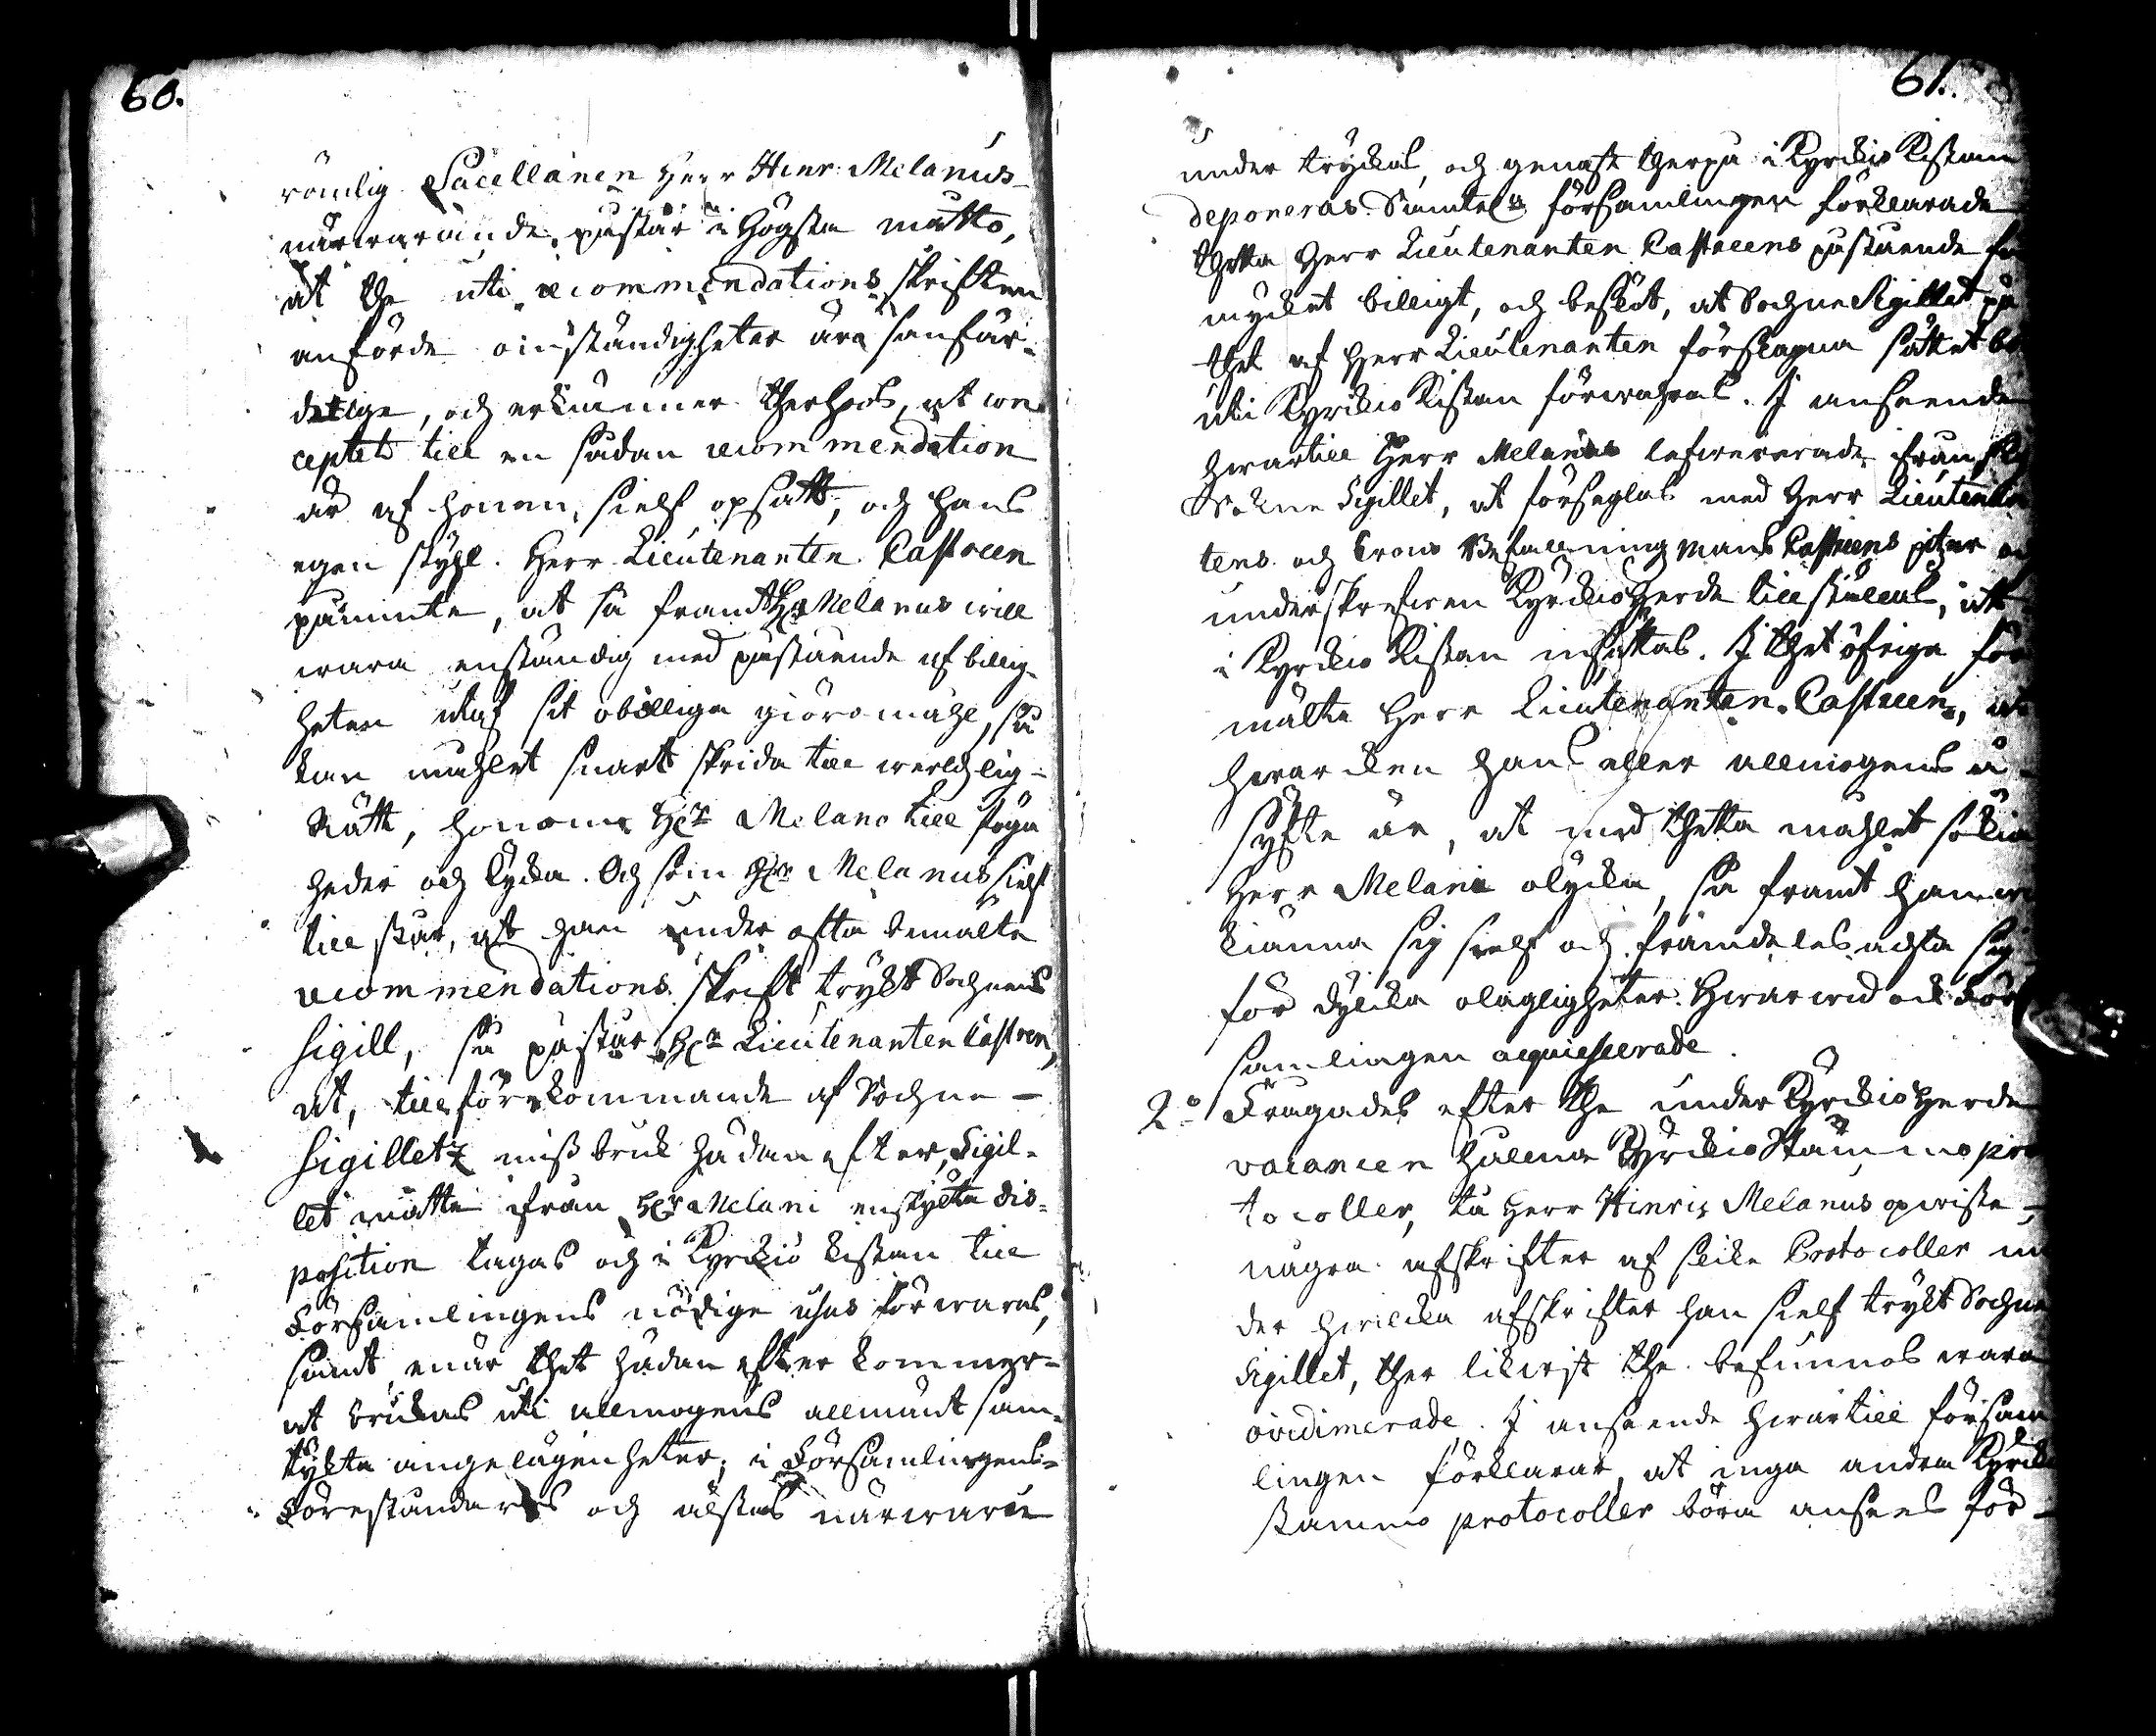 60.
römlig Sacellanen Herr Hinr: Melanus
närwarande, påstår i högsta måtto,
at the uti recommendations skriften
anförde omständigheter äro sanfär-
delige, och erkänner therhos, at con-
ceptet till en sådan recommendation
är af honom sielf opsatt, och hans
egen styhl. Herr Lieutenanten Castreen
påminte, at så framt Hr Melanus will
wara enständig med påstående af billig-
heten utaf sit obillige giöromåhl, så
kan måhlet snart skrida till werdslig
Rätt, honom Hr Melano till föga
heder och lycka. Och som Hr Melanus sielf
till står, at han under ofta bemälte
recommendations skrift tryckt Sochnens
Sigill, så påstår Hr Lieutenanten Castreen,
at, till förekommande af Sochne-
Sigilletz missbruk hädanefter, Sigil-
let måtte ifrån Hr Melani enskylta dis-
position tagas och i Kyrckio kistan till
Församlingens nödige usus förwaras,
samt, enär thet hädan efter kommer
at brukas uti allmogens allmänt sam-
tyckta angelägenheter, i Församlingens
Föreståndares och älstas närwaru
61.
under tryckas, och genast therpå i Kyrckio Kistan
deponeras. Samtel. församlingen förklarade
thetta Herr Lieutenanten Castreens påstående
mycket billigt, och beslöt, at Sochne Sigillet på
thet af Herr Lieutenanten förslagna sättet
uti Kyrckio Kistan förwahras. I anseende
hwartill Herr Melanus lefwererade ifrån
Sochne Sigillet, at förseglas med Herr Lieutenan-
tens och Crono Befallningmans Castreens
underskrefwen Kyrckio Herde tillställas, at
i Kyrckio Kistan insättas. I thet öfriga för
mälte Herr Lieutenanten Castreen, at
hwarcken hans eller allmogens
syfte är, at med thetta måhlet sökia
Herr Melani olycka, så framt han
kiänna sig sielf och främdeles achta sig
för dylicka olagligheter. Hwarwid ock För
samlingen acquiescerade.
2o Frågades efter the under KyrckioHerde
vacancen hållna KyrckioStämmo pro
tocoller, tå Herr Hinric Melanus opwiste
några afskrifter af slike Protocoller un
der hwilcka afskrifter han sielf tryckt Sochne
Sigillet, ther likwist the befunnos wara
ovidimerade. I anseende hwartill försam
lingen förklarar, at inga andra Kyrckio
stämmo protocoller böra anses för